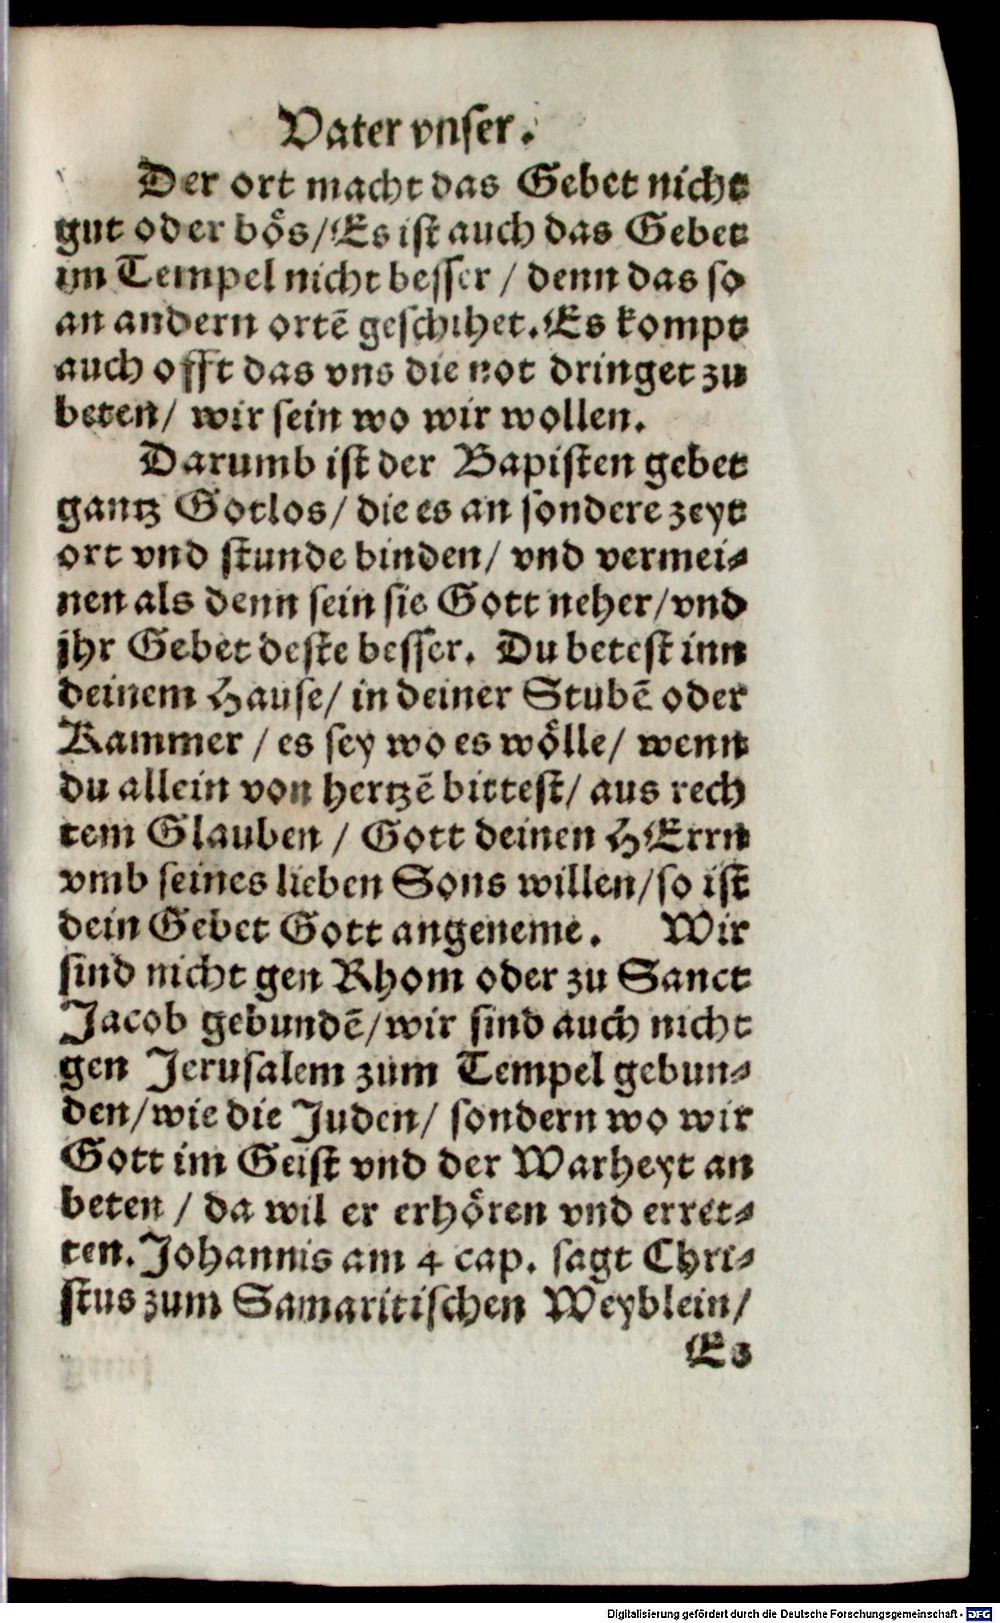 Vater vnser.
Der ort macht das Gebet nicht
gut oder bös/Es ist auch das Gebet
im Tempel nicht besser / denn das so
an andern ortē geschihet. Es kompt
auch offt das vns die not dringet zu
beten/ wir sein wo wir wollen.
Darumb ist der Bapisten gebet
gantz Gotlos/ die es an sondere zeyt
ort vnd stunde binden/ vnd vermei⸗
nen als denn sein sie Gott neher/vnd
jhr Gebet deste besser. Du betest inn
deinem Hause/ in deiner Stubē oder
Kammer / es sey wo es wölle/ wenn
du allein von hertzē bittest/ aus rech
tem Glauben / Gott deinen HErrn
vmb seines lieben Sons willen/so ist
dein Gebet Gott angeneme. Wir
sind nicht gen Rhom oder zu Sanct
Jacob gebundē/wir sind auch nicht
gen Jerusalem zum Tempel gebun⸗
den/wie die Juden/ sondern wo wir
Gott im Geist vnd der Warheyt an
beten / da wil er erhören vnd erret⸗
ten. Johannis am 4 cap. sagt Chri⸗
stus zum Samaritischen Weyblein/
Es
Digitalisierung gefördert durch die Deutsche Forschungsgemeinschaft - DFG